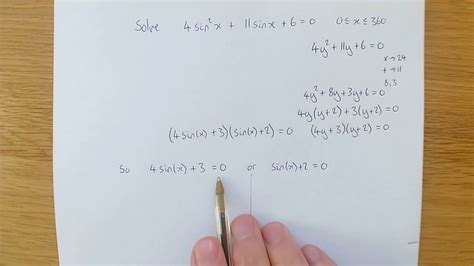 Solve 4sin²x + 11sinx + 6 = 0 0 ≤ x ≤ 360
4y² + 11y + 6 = 0
x → 24
+ → 11
8, 3
4y² + 8y + 3y + 6 = 0
4y(y+2) + 3(y+2) = 0
(4sin(x) + 3)(sin(x) + 2) = 0 (4y+3)(y+2) = 0
So 4sin(x) + 3 = 0 or sin(x) + 2 = 0